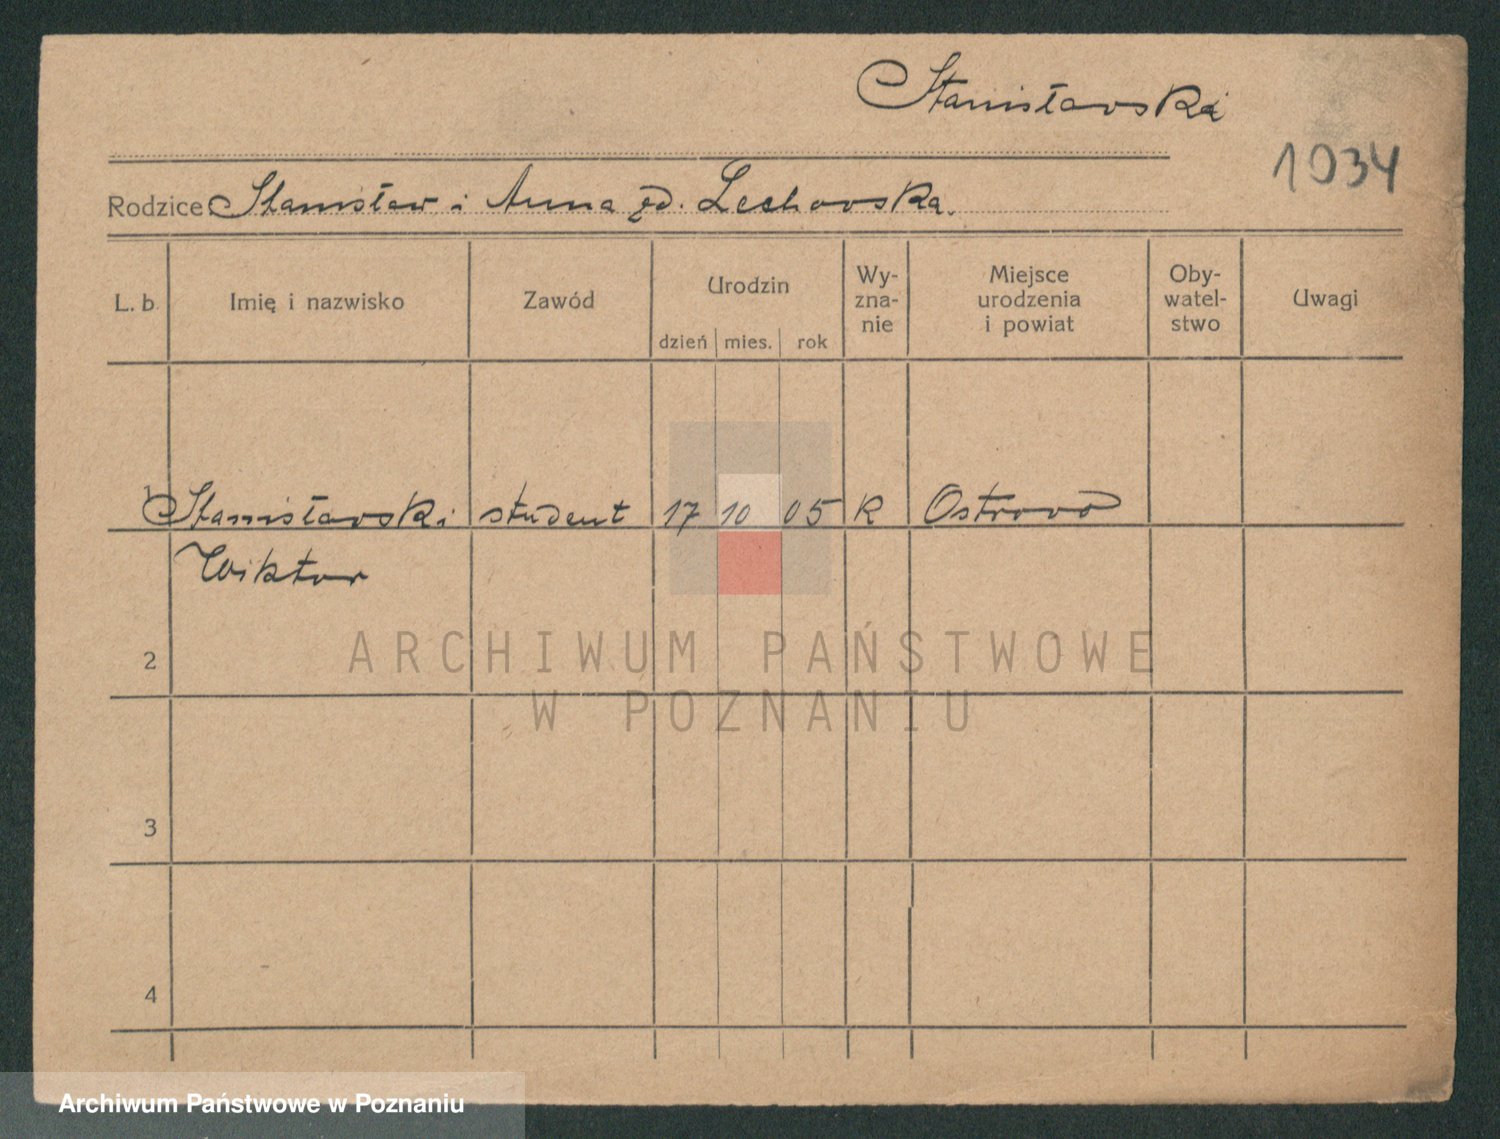 Stanisławski
1934
Rodzice Stanisław i Anna zd. Lechowska.
L. b. Imię i nazwisko Zawód Urodzin dzień mies. rok Wy-zna-nie Miejsce urodzenia i powiat Oby-watel-stwo Uwagi
1 Stanisławski student 17 10 05 R Ostrowo
Wiktor
2
ARCHIWUM PAŃSTWOWE
W POZNANIU
3
4
Archiwum Państwowe w Poznaniu